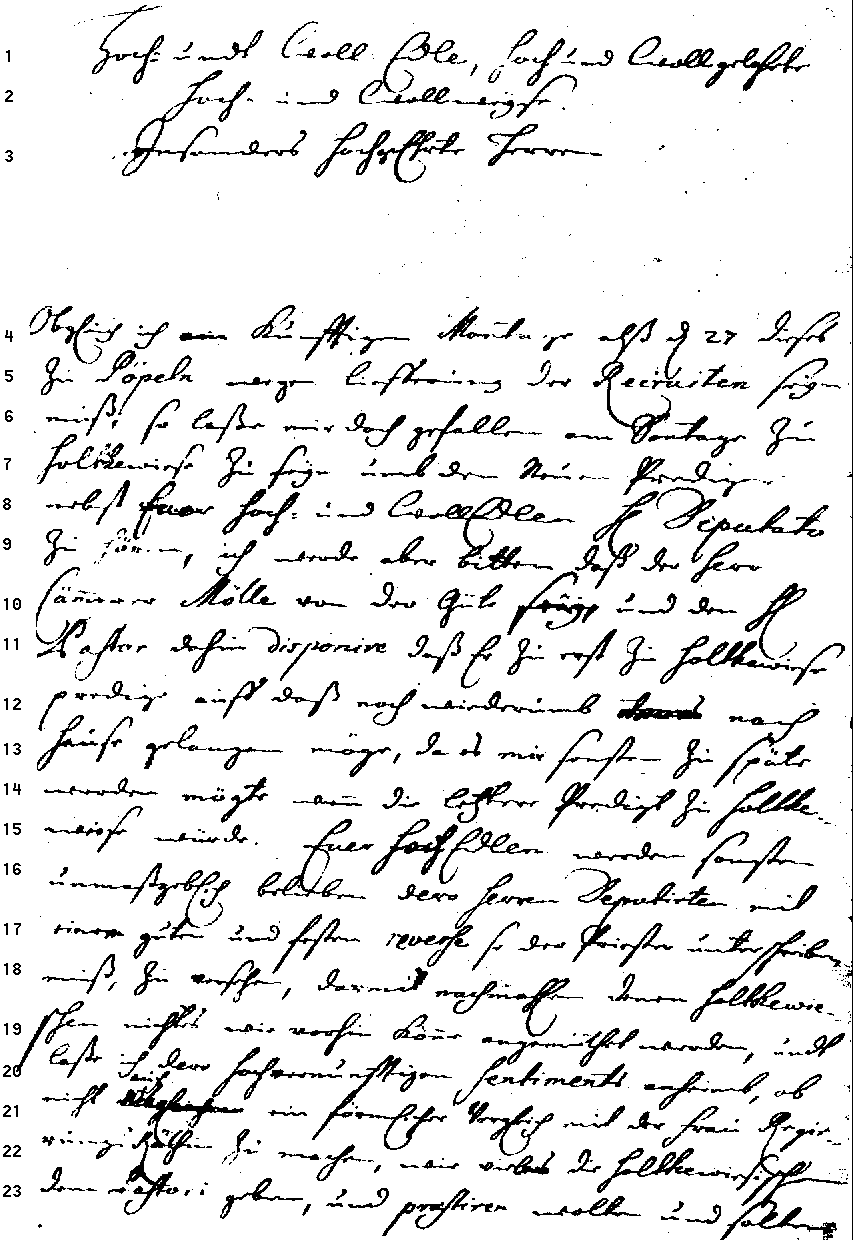 1 Hoch- undt Woll Edle, Hoch und Wollgelahrte
2 Hoch- und Wollweyse
3 Insonders HochgeEhrte Herren
4 Obgleich ich am Künfftigen Montage alß d 27 dieses
5 zu Pöpeln wegen lieffrung der Recruiten seyn
6 muß, so laße mir doch gefallen am Sontage zu
7 Holtkewiese zu seyn umb den Neuen Prediger
8 nebst Euer Hoch- und WollEdlen H Deputato
9 zu hören, ich werde aber bitten daß der Herr
10 Cämmerer Mölle von der Güte seyn und den H
11 Pastor dahin disponire daß Er zu erst zu Holtkewiese
12 predige auff daß noch wiederumb nach
13 Hause gelangen möge, da es mir sonsten zu späte
14 werden mögte wenn die letztere Predigt zu Holtke-
15 wiese würde. Euer HochEdlen werden sonsten
16 unmaßgeblich belieben dero Herren Deputirten mit
17 einem guten und festen reverse so der Priester unterschreiben
18 muß, zu versehen, damit nachmahlen denen Holtkewie-
19 schen nichtes wie vorhin könne angemuthet werden, undt
20 laße ich dero Hochvernünfftigen sentiments anheimb, ob
21 nicht auch ein förmlicher Vergleich mit der Frau Regie-
22 rungs Räthin zu machen, wie vieles die Holtkewiesischen
23 dem Pastori geben, und præstiren wolten und solten